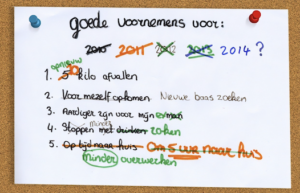 goede voornemens voor:
2010 2011 2012 2013 2014?
opnieuw
1. 5 kilo afvallen
2. Voor mezelf opkomen Nieuwe baas zoeken
3. Aardiger zijn voor mijn ex man
minder
4. Stoppen met drinken roken
5. Op tijd naar huis Om 5 uur naar huis
minder overwerken